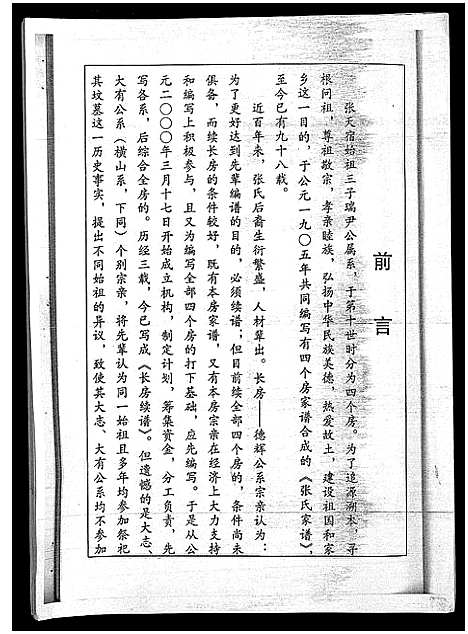 前言
张天宿始祖三子瑞尹公属系，于第十世时分为四个房。为了追源溯本，寻
根问祖，尊祖敬宗，孝亲睦族，弘扬中华民族美德，热爱故土，建设祖国和家
乡这一目的，于公元一九〇五年共同编写有四个房家谱合成的《张氏家谱》，
至今已有九十八载。
近百年来，张氏后裔生衍繁盛，人材辈出。长房——德辉公系宗亲认为：
为了更好达到先辈编谱的目的，必须续谱；但目前续全部四个房的，条件尚未
俱备，而续长房的条件较好，既有本房家谱，又有本房宗亲在经济上大力支持
和编写上积极参与，且又为编写全部四个房的打下基础，应先编写。于是从公
元二〇〇〇年三月十七日开始成立机构，制定计划，筹集资金，分工负责，先
写各系，后综合全房的。历经三载，今已写成《长房续谱》。但遗憾的是大志、
大有公系（横山系，下同）个别宗亲，将先辈认为同一始祖且多年均参加祭祀
其坟墓这一历史事实，提出不同始祖的异议，致使其大志、大有公系均不参加